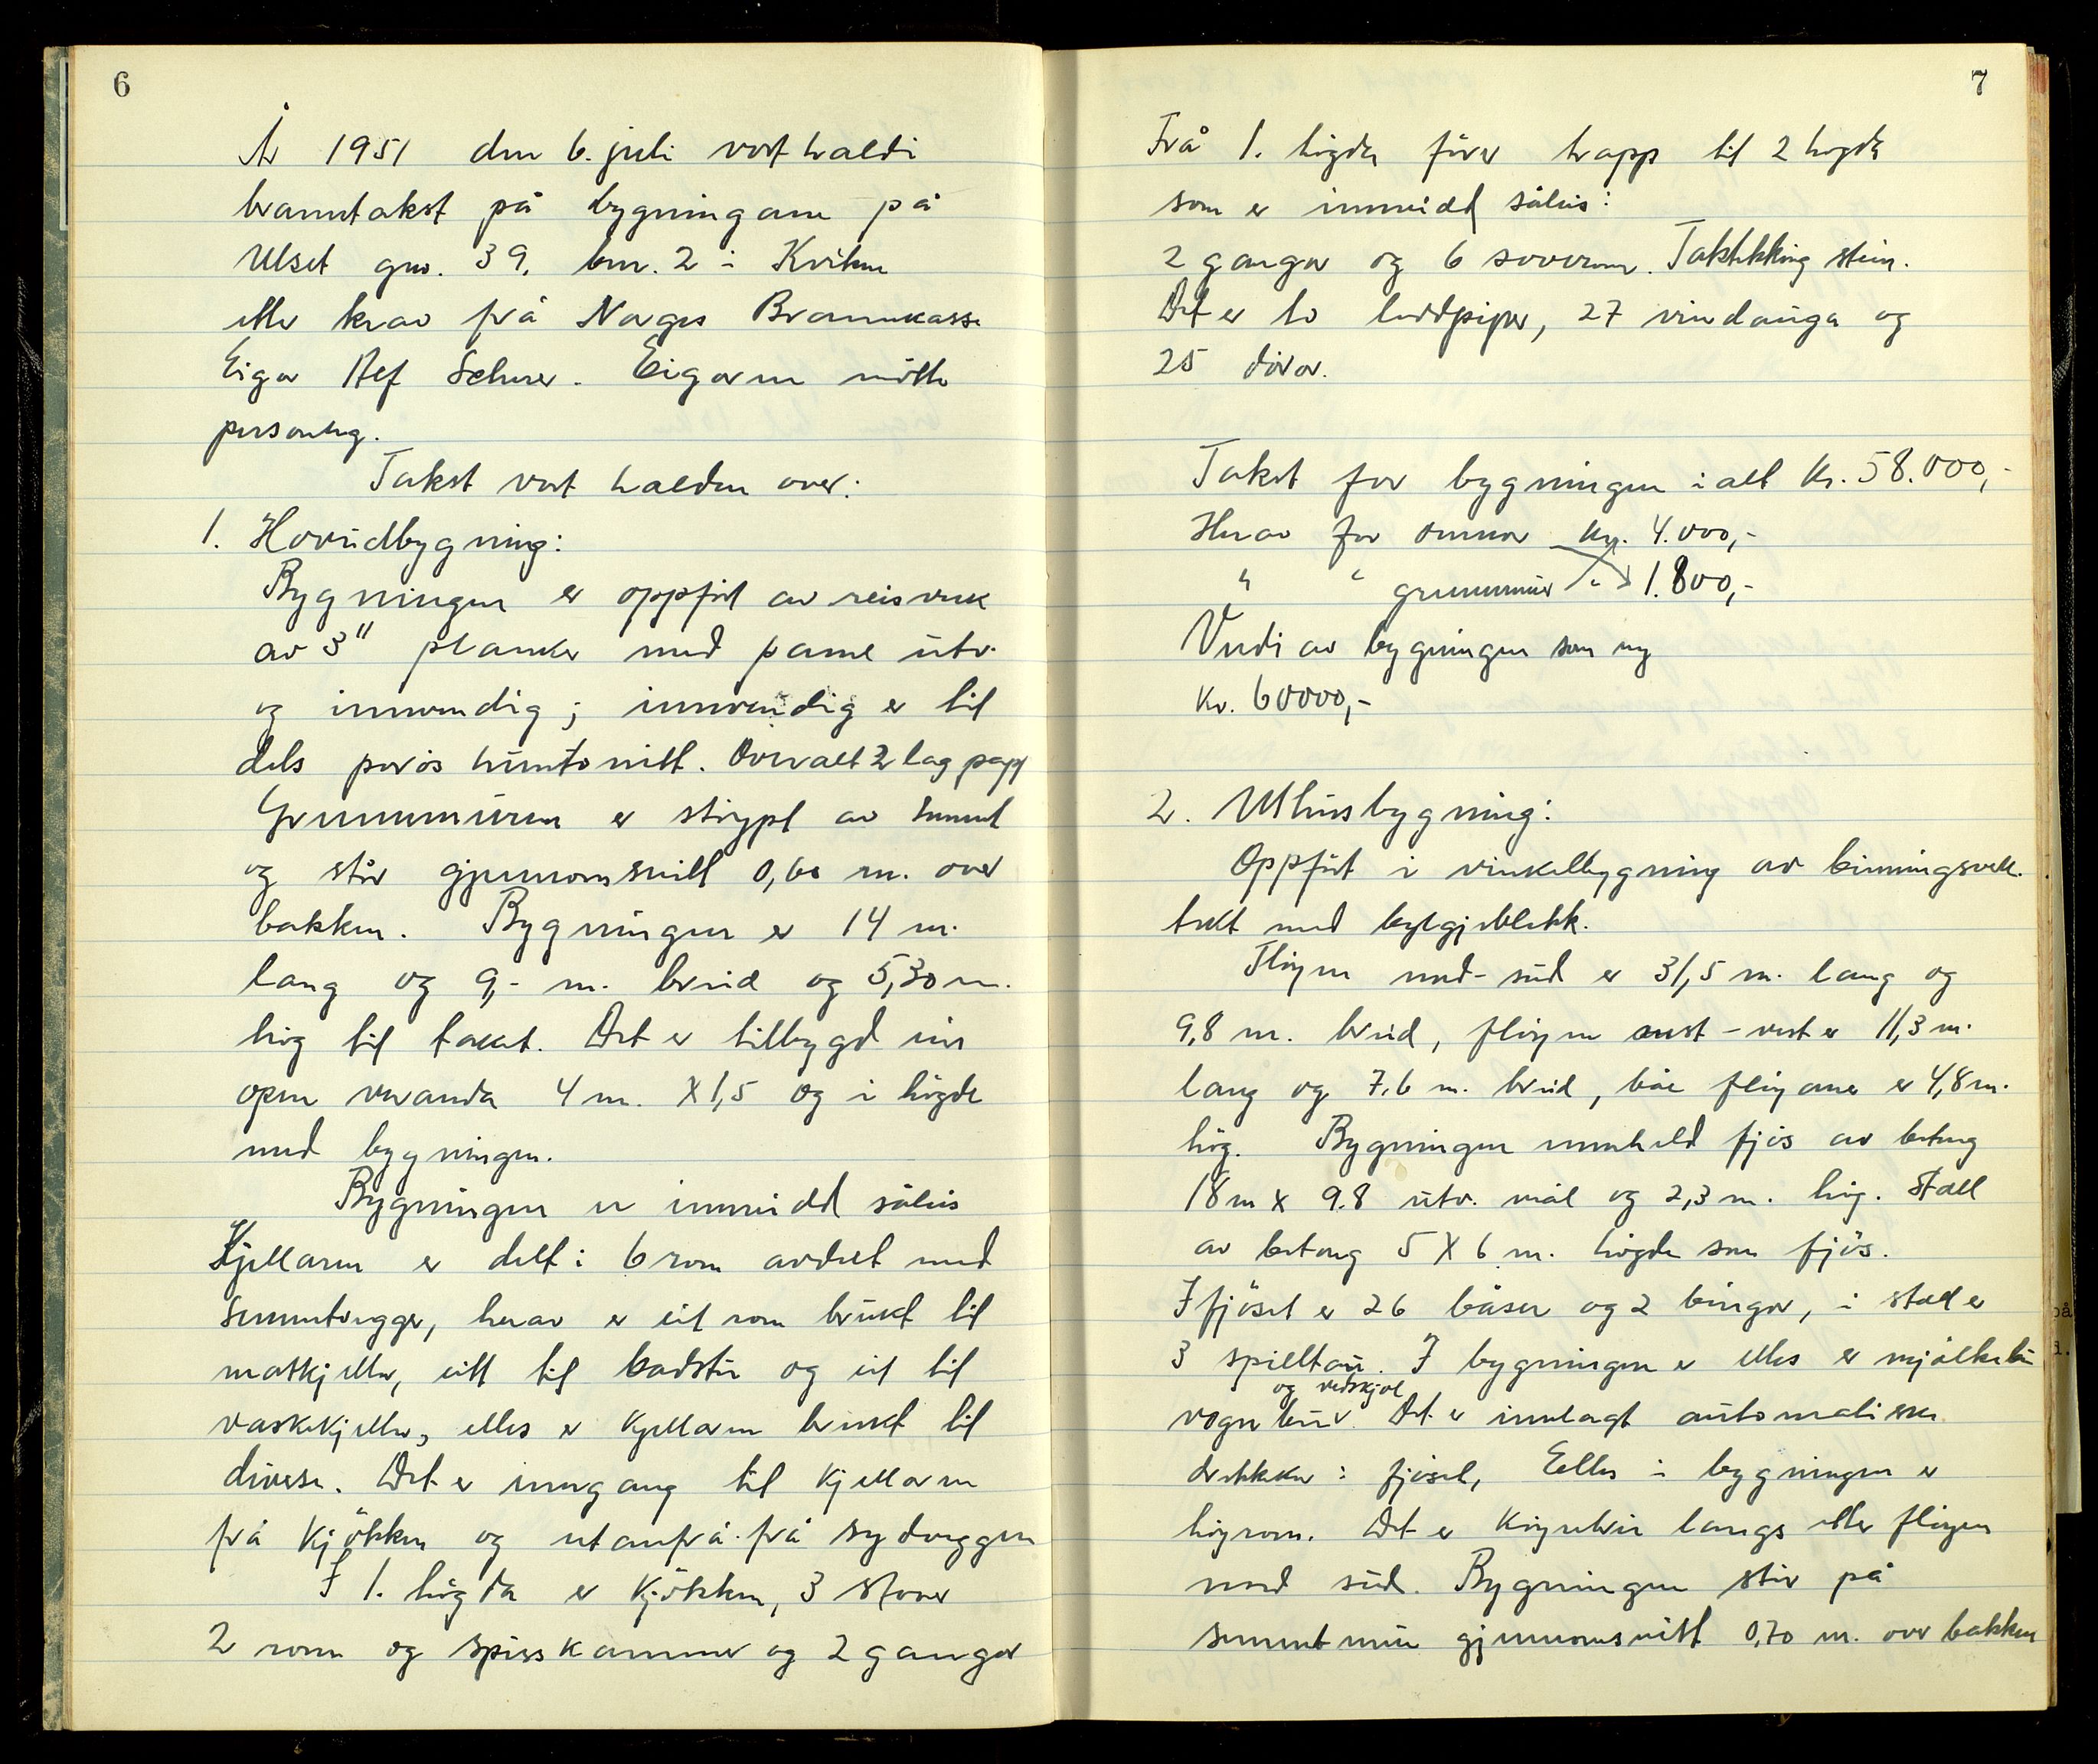 6
År 1951 den 6. juli vart haldi
branntakst på bygningane på
Ulset gnr. 39, bnr. 2 i Kvikne
etter krav frå Norges Brannkasse
Eigar Alf Schrer. Eigaren møtte
personleg.
Takst vart halden over:
1. Hovudbygning:
Bygningen er oppført av reisverk
av 3" planker med panel utv.
og innvendig; innvendig er til
dels porøs huntonitt. Overalt 2 lag papp
Grunnmuren er støypt av sement
og står gjennomsnitt 0,60 m. over
bakken. Bygningen er 14 m.
lang og 9,- m. breid og 5,30 m.
høg til taket. Det er tilbygd ein
open veranda 4 m. X 1,5 og i høgde
med bygningen.
Bygningen er innreidd såleis
Kjellaren er delt i 6 rom avdelt med
sementvegger, herav er eit rom brukt til
matkjeller, eitt til badstu og eit til
vaskekjeller, elles er kjellaren brukt til
diverse. Det er inngang til kjellaren
frå kjøkken og utanfrå frå sydveggen
I 1. høgda er kjøkken, 3 stover
2 rom og spisskammer og 2 gangar
7
Frå 1. høgda fører trapp til 2 høgda
som er innreidd såleis:
2 gangar og 6 soverom. Taktekking stein.
Det er to luftpiper, 27 vindauga og
25 dørar.
Takst for bygningen i alt kr. 58.000,-
Herav for omnar kr. 4.000,-
" " grunnmur " 1.800,-
Verdi av bygningen som ny
kr. 60000,-
2. Uthusbygning:
Oppført i vinkelbygning av binningsverk.
tekt med bylgjeblekk.
Fløyen nord-sud er 31,5 m. lang og
9,8 m. breid, fløyen aust-vest er 11,3 m.
lang og 7,6 m. breid, båe fløyane er 4,8 m.
høg. Bygningen inneheld fjøs av betong
18 m x 9.8 utv. mål og 2,3 m. høg. Stall
av betong 5 X 6 m. høgde som fjøs.
I fjøset er 26 båser og 2 bingar, i stall er
3 spilltau. I bygningen er elles er mjølkebu
og vedskjol
vognbu v Det er innlagt automatiske
drikkekar i fjøset, Elles i bygningen er
høyrom. Det er køyrebru langs etter fløyen
nord sud. Bygningen står på
sementmur gjennomsnitt 0,70 m. over bakken